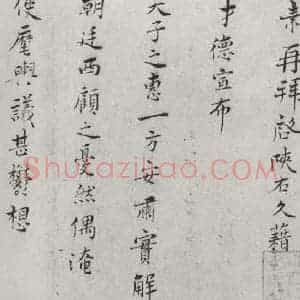 素再拜啓陝右久藉
才德宣布
天子之惠一方安肅實解
朝廷西顧之憂然偶淹
使麾輿議甚鬱想
Shufaziliao.com